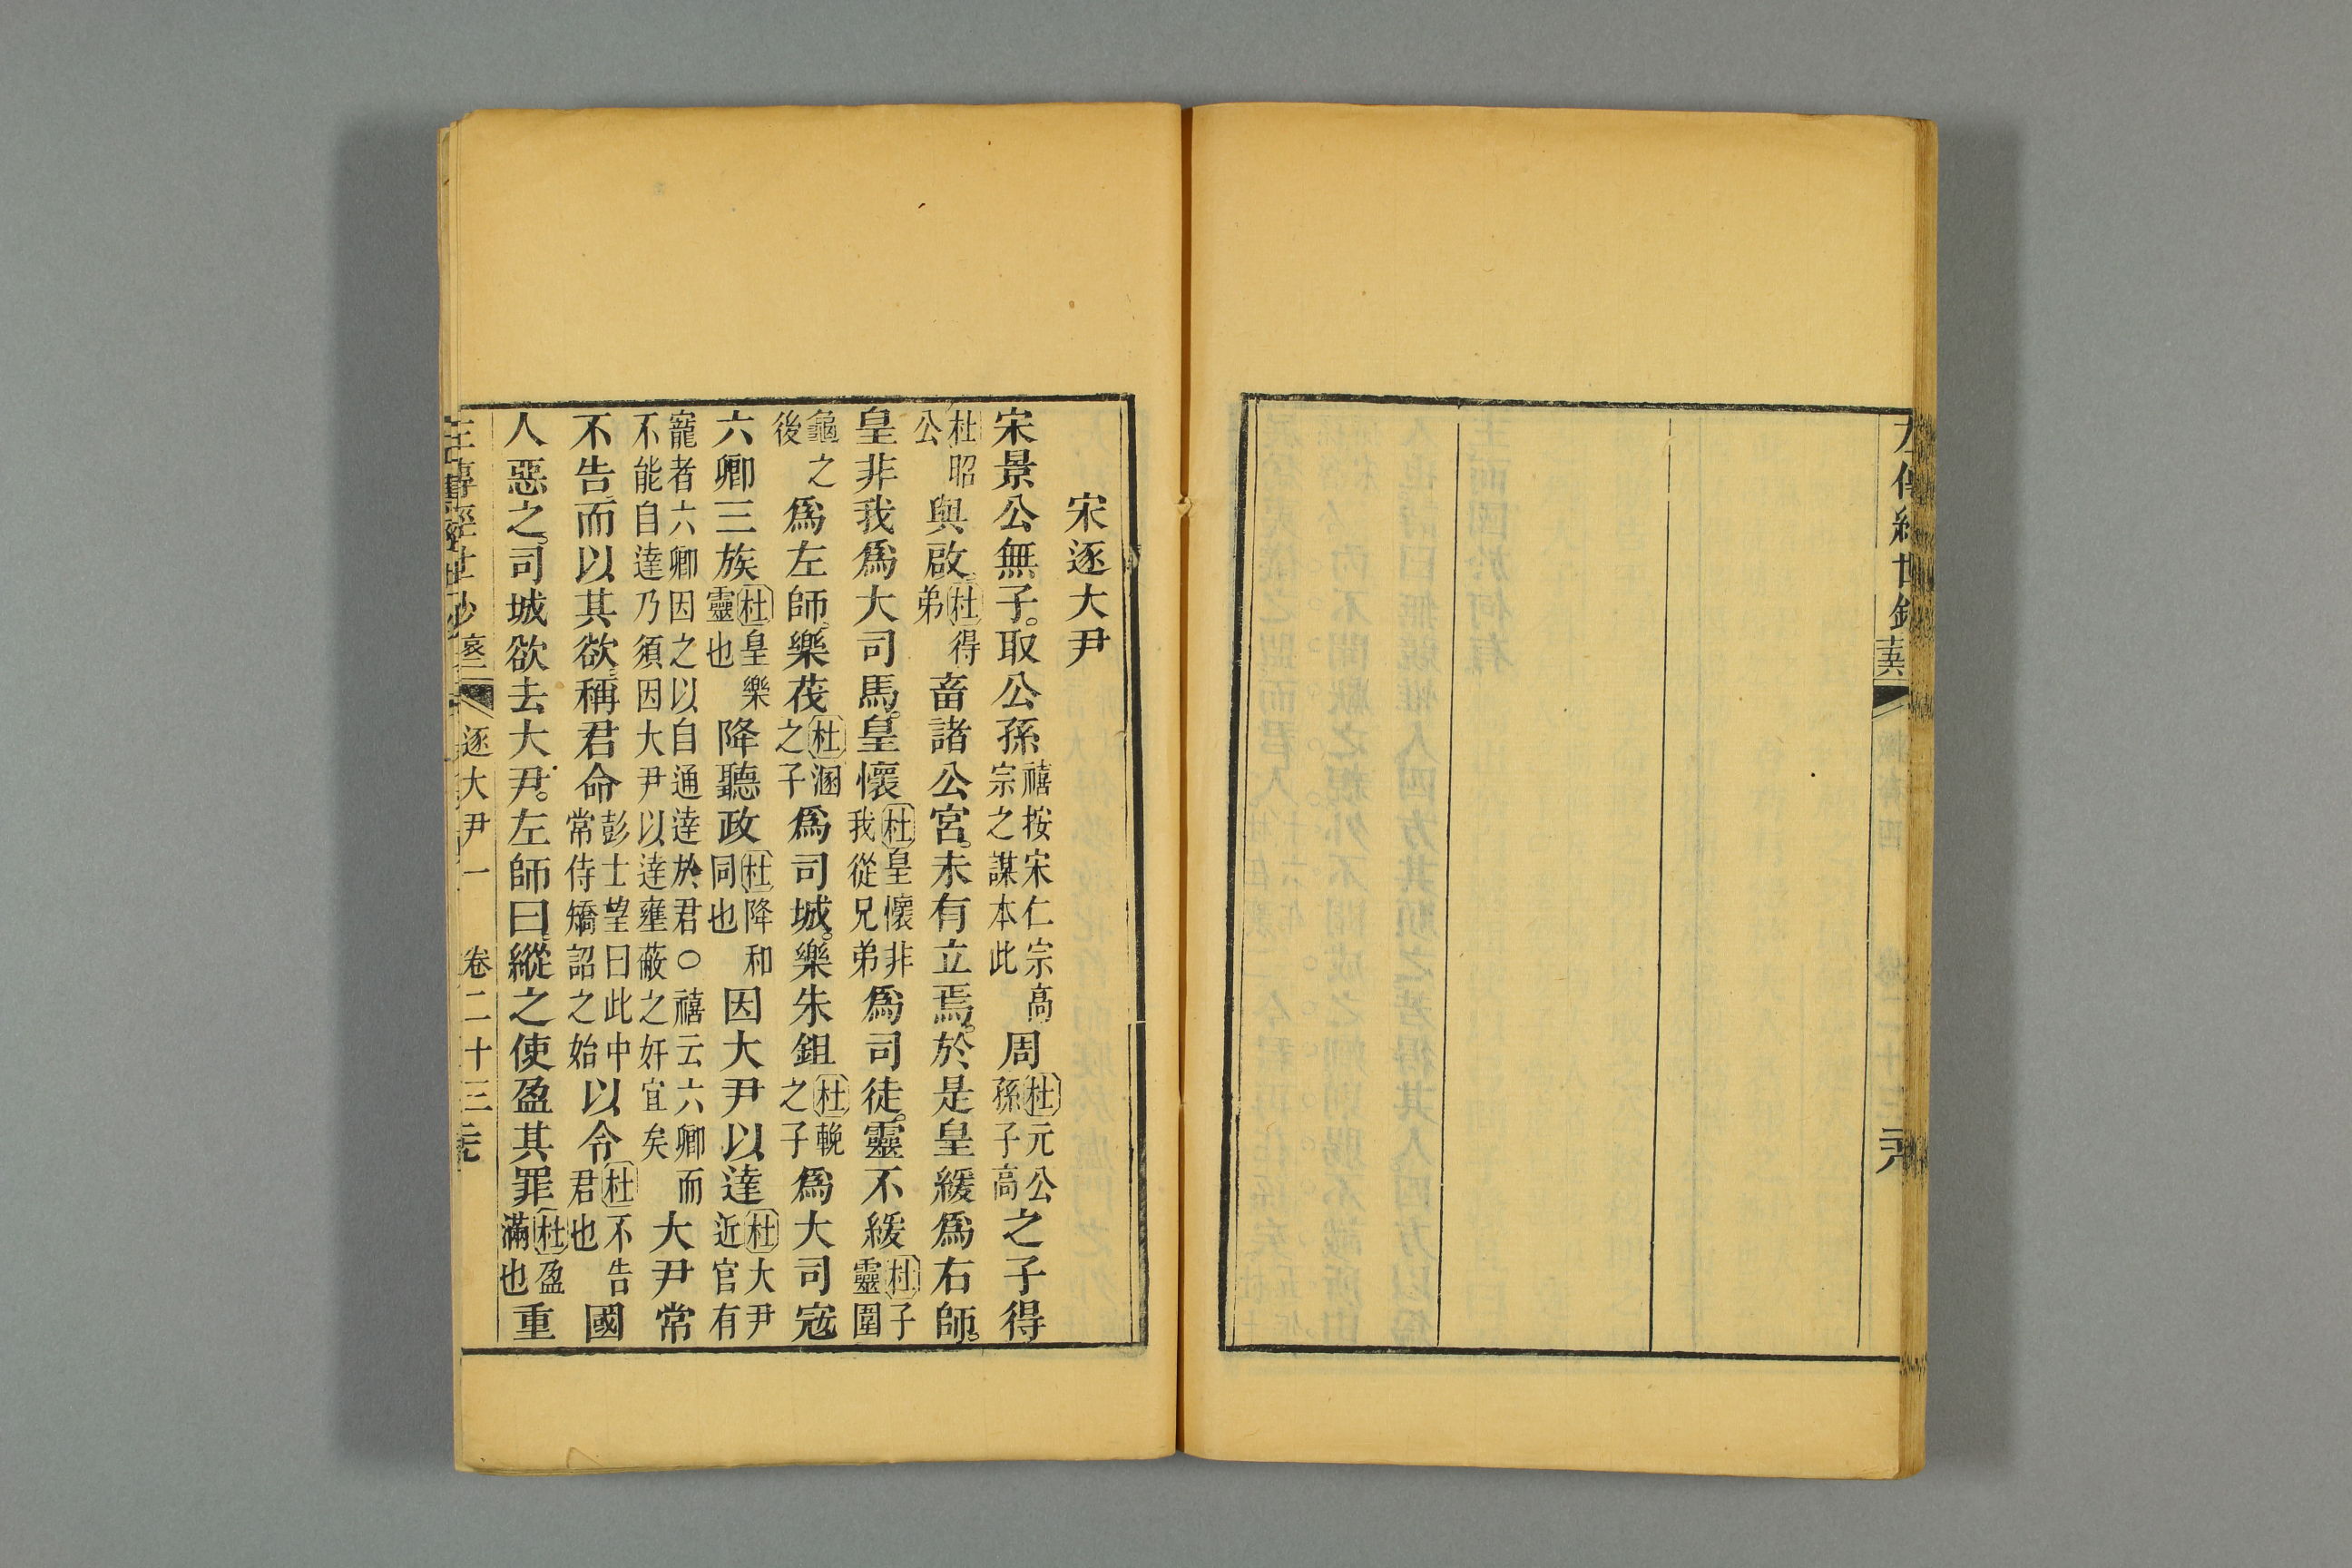 左傳經世鈔
宋逐大尹
宋景公無子。取公孫禧按宋仁宗高宗之謀本此周杜元公孫子高之子得
杜昭公與啟杜得弟畜諸公宮。未有立焉。於是皇緩爲右師。
皇非我爲大司馬。皇懷杜皇懷非我從兄弟爲司徒。靈不緩杜子靈圍
龜之後爲左師。樂茷杜溷之子爲司城。樂朱鉏杜輓之子爲大司寇
六卿三族杜皇樂靈也降聽政杜降和同也因大尹以達杜大尹近官有
寵者六卿因之以自通達於君○禧云六卿而不能自達乃須因大尹以達壅蔽之奸宜矣大尹常
不告而以其欲稱君命彭士望曰此中常侍矯詔之始以令杜不告君也國
人惡之。司城欲去大尹。左師曰縱之使盈其罪杜盈滿也重
左傳經世鈔 哀二 逐大尹一 卷二十三